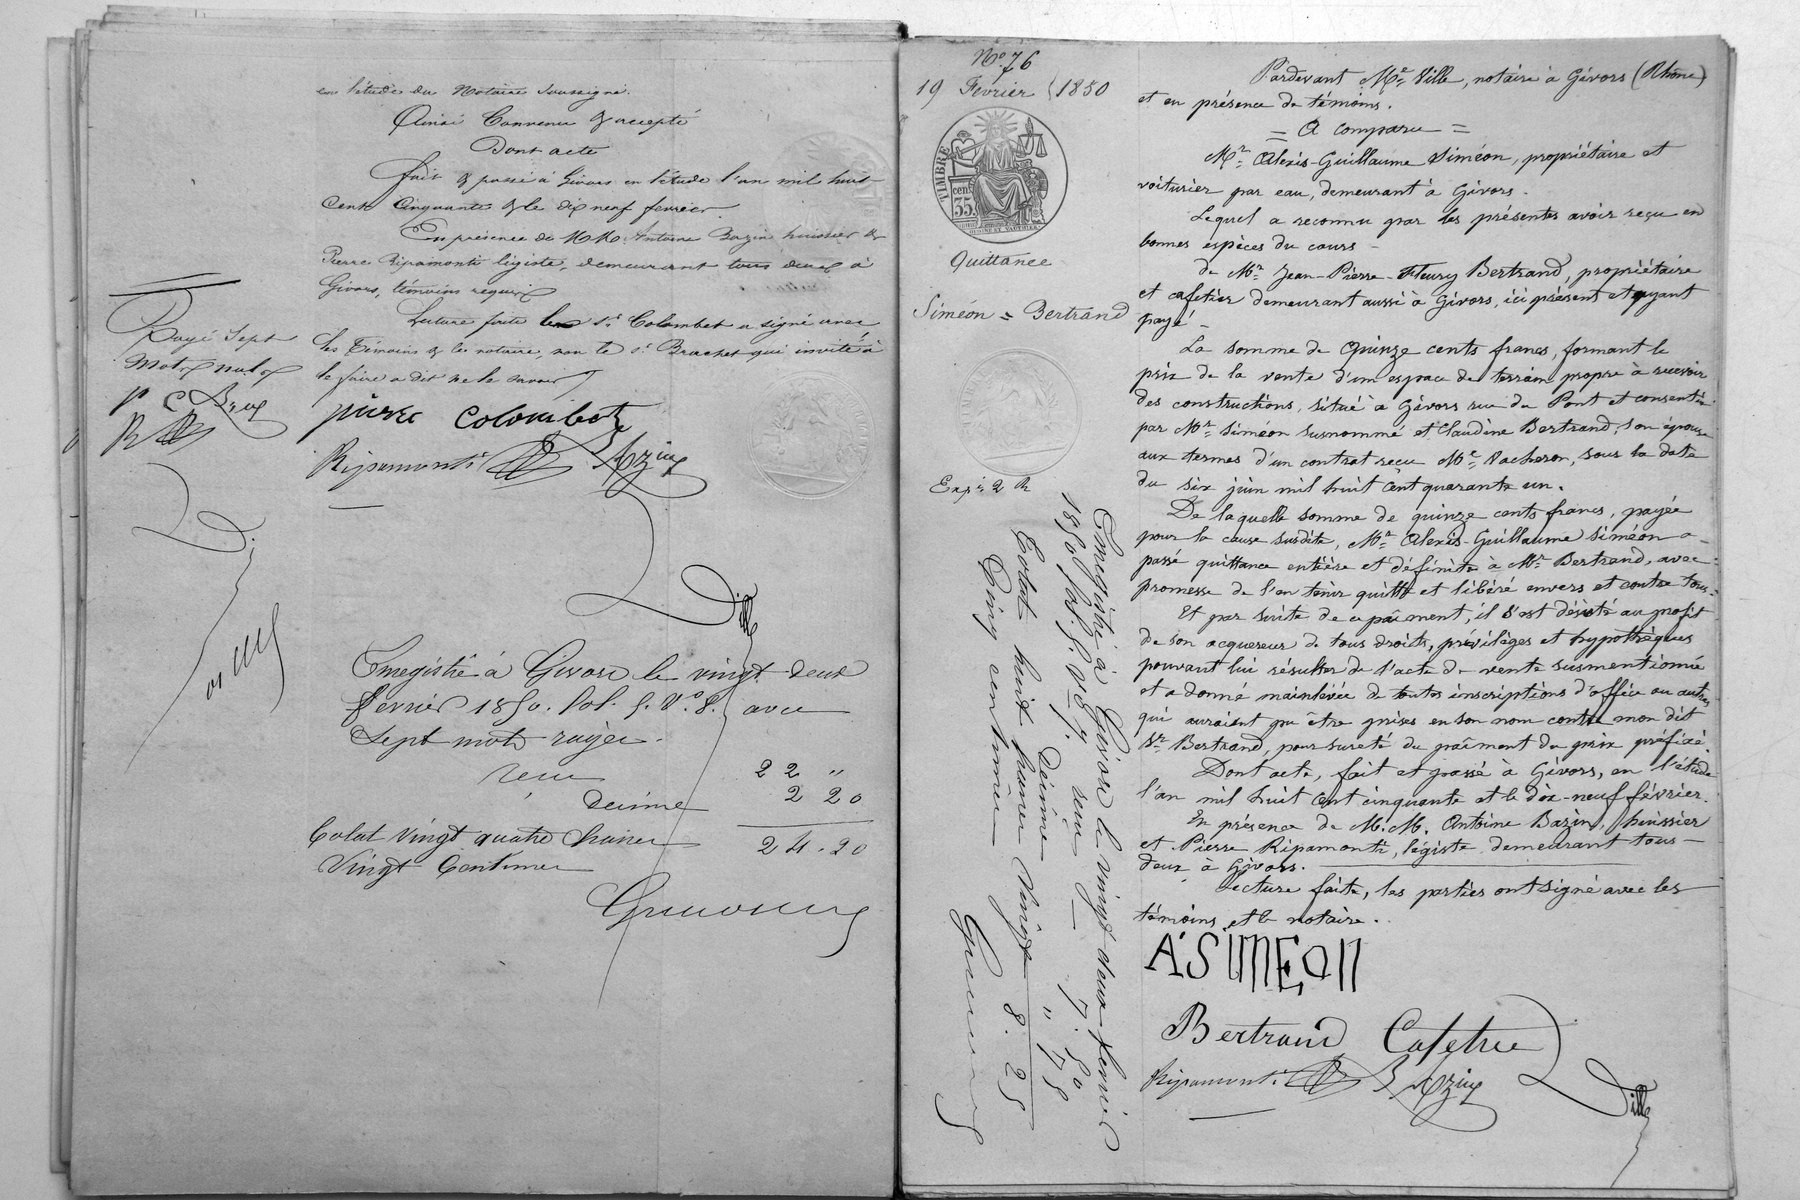 en l'étude du Notaire soussigné.
Ainsi Convenu & accepté
Dont acte
fait & passé à Givors en l'étude l'an mil huit
cent cinquante & le dix neuf fevrier.
En présence de MM. Antoine Bazin huissier &
Pierre Ripamonti légiste, demeurant tous deux à
Givors, témoins requis
Lecture faite le sr. Colombet a signé avec
les témoins & le notaire, non le sr. Brachet qui invité à
le faire a dit ne le savoir
Rayé sept
mots nuls
pierre Colombet
Ripamonti Bazin
Ville
Enregistré à Givors le vingt deux
février 1850. fol. 5. Vo. 8. avec
Sept mots rayés.
reçu 22 "
decime 2 20
Total vingt quatre francs 24.20
Vingt Centimes
No. 76
19 Février 1850
TIMBRE
cent
35.
Quittance
Siméon = Bertrand
Expée 2 R
Enregistré à Givors le vingt deux fevrier
1850 fol. 5. Vo 7. reçu 7. 50
Décime " 75
Total huit francs vingt 8. 25
Cinq centimes
Pardevant Me. Ville, notaire à Givors (Rhône)
et en présence de témoins.
= A comparu =
Mr. Alexis-Guillaume Siméon, propriétaire et
voiturier par eau, demeurant à Givors.
Lequel a reconnu par les présentes avoir reçu en
bonnes espèces du cours
de Mr. Jean-Pierre-Fleury Bertrand, propriétaire
et cafetier demeurant aussi à Givors, ici présent et ayant
payé
La somme de Quinze cents francs, formant le
prix de la vente d'un espace de terrain propre à recevoir
des constructions, situé à Givors rue du Pont et consentie
par Mr. Siméon susnommé et Claudine Bertrand, son épouse
aux termes d'un contrat reçu Me. Vacheron, sous la date
du six juin mil huit cent quarante un.
De laquelle somme de quinze cents francs, payée
pour la cause susdite, Mr. Alexis-Guillaume Siméon a
passé quittance entière et définitive à Mr. Bertrand, avec
promesse de l'en tenir quitte et libéré envers et contre tous.
Et par suite de ce paîment, il s'est désisté au profit
de son acquereur de tous droits, priviléges et hypothèques
pouvant lui résulter de l'acte de vente susmentionné
et a donné mainlevée de toutes inscriptions d'office ou autres
qui auraient pu être prises en son nom contre mon dit
Sr. Bertrand, pour sureté du paîment du prix préfixé.
Dont acte, fait et passé à Givors, en l'étude
l'an mil huit cent cinquante et le dix-neuf février.
En présence de M.M. Antoine Bazin, huissier
et Pierre Ripamonti, légiste demeurant tous
deux à Givors.
Lecture faite, les parties ont signé avec les
témoins et le notaire.
A SIMEON
Bertrand Cafetier
Ripamonti Bazin
Ville